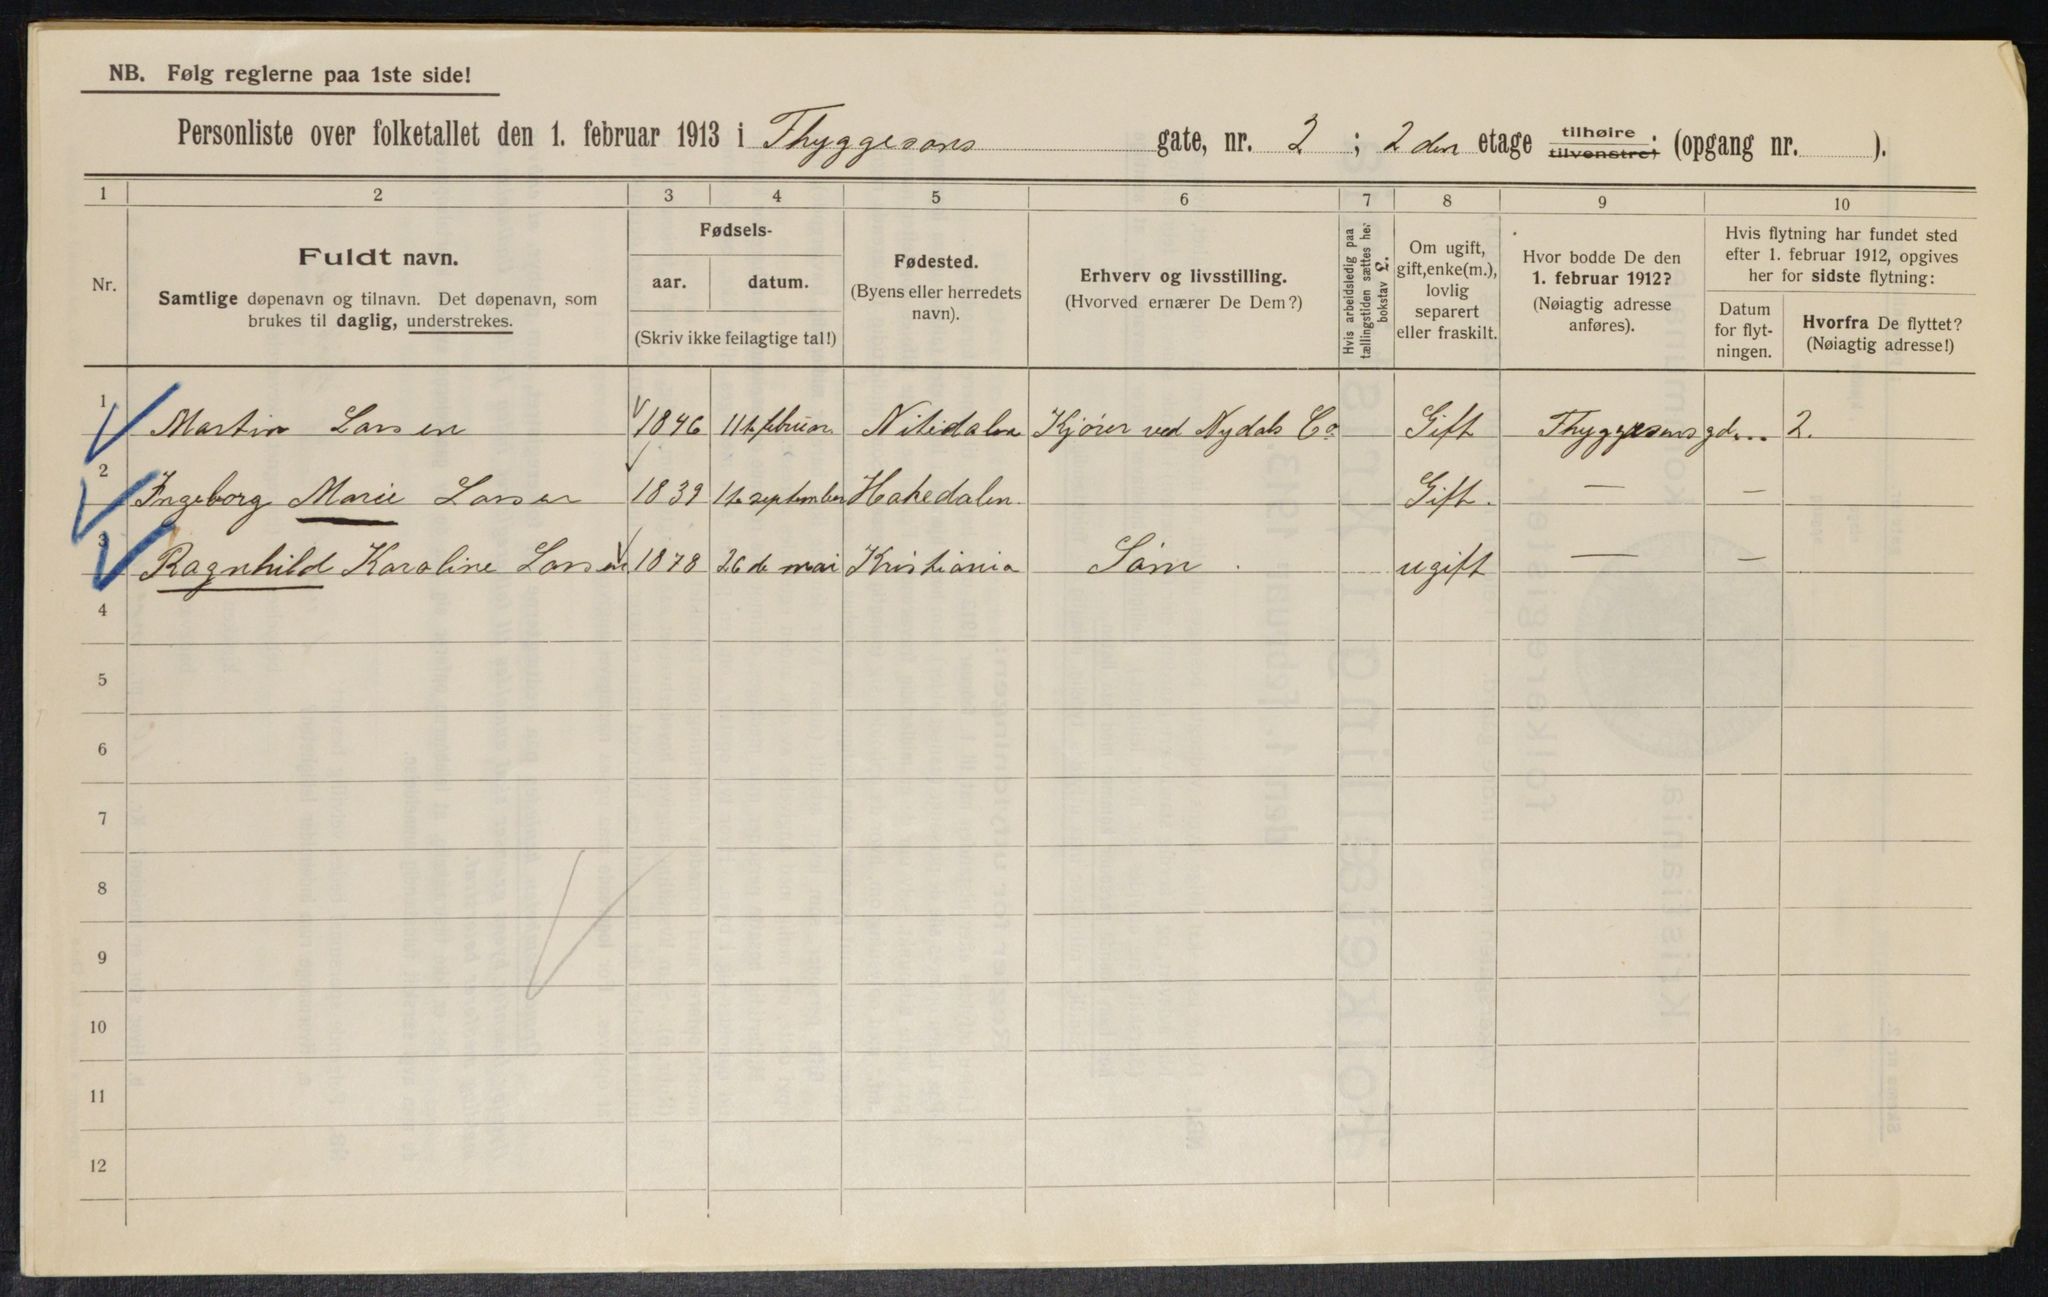 NB. Følg reglerne paa 1ste side!
Personliste over folketallet den 1. februar 1913 i Thyggesons gate, nr. 2 ; 2den etage tilhøire tilvenstre; (opgang nr. ).
1 2 3 4 5 6 7 8 9 10
Nr.
Fuldt navn.
Samtlige døpenavn og tilnavn. Det døpenavn, som
brukes til daglig, understrekes.
Fødsels-
aar. datum.
(Skriv ikke feilagtige tal!)
Fødested.
(Byens eller herredets
navn).
Erhverv og livsstilling.
(Hvorved ernærer De Dem?)
Hvis arbeidsledig paa
tællingstiden sættes her
bokstav L.
Om ugift,
gift, enke(m.),
lovlig
separert
eller fraskilt.
Hvor bodde De den
1. februar 1912?
(Nøiagtig adresse
anføres).
Hvis flytning har fundet sted
efter 1. februar 1912, opgives
her for sidste flytning:
Datum
for flyt-
ningen.
Hvorfra De flyttet?
(Nøiagtig adresse!)
1 Martin Larsen 1846 11te februar Nitedalen Kjører ved Nydals Co Gift Thyggesensgd... 2.
2 Ingeborg Marie Larsen 1839 1te september Hakedalen Gift. — —
3 Ragnhild Karoline Larsen 1878 26de mai Kristiania Söm . ugift — —
4
5
6
7
8
9
10
11
12